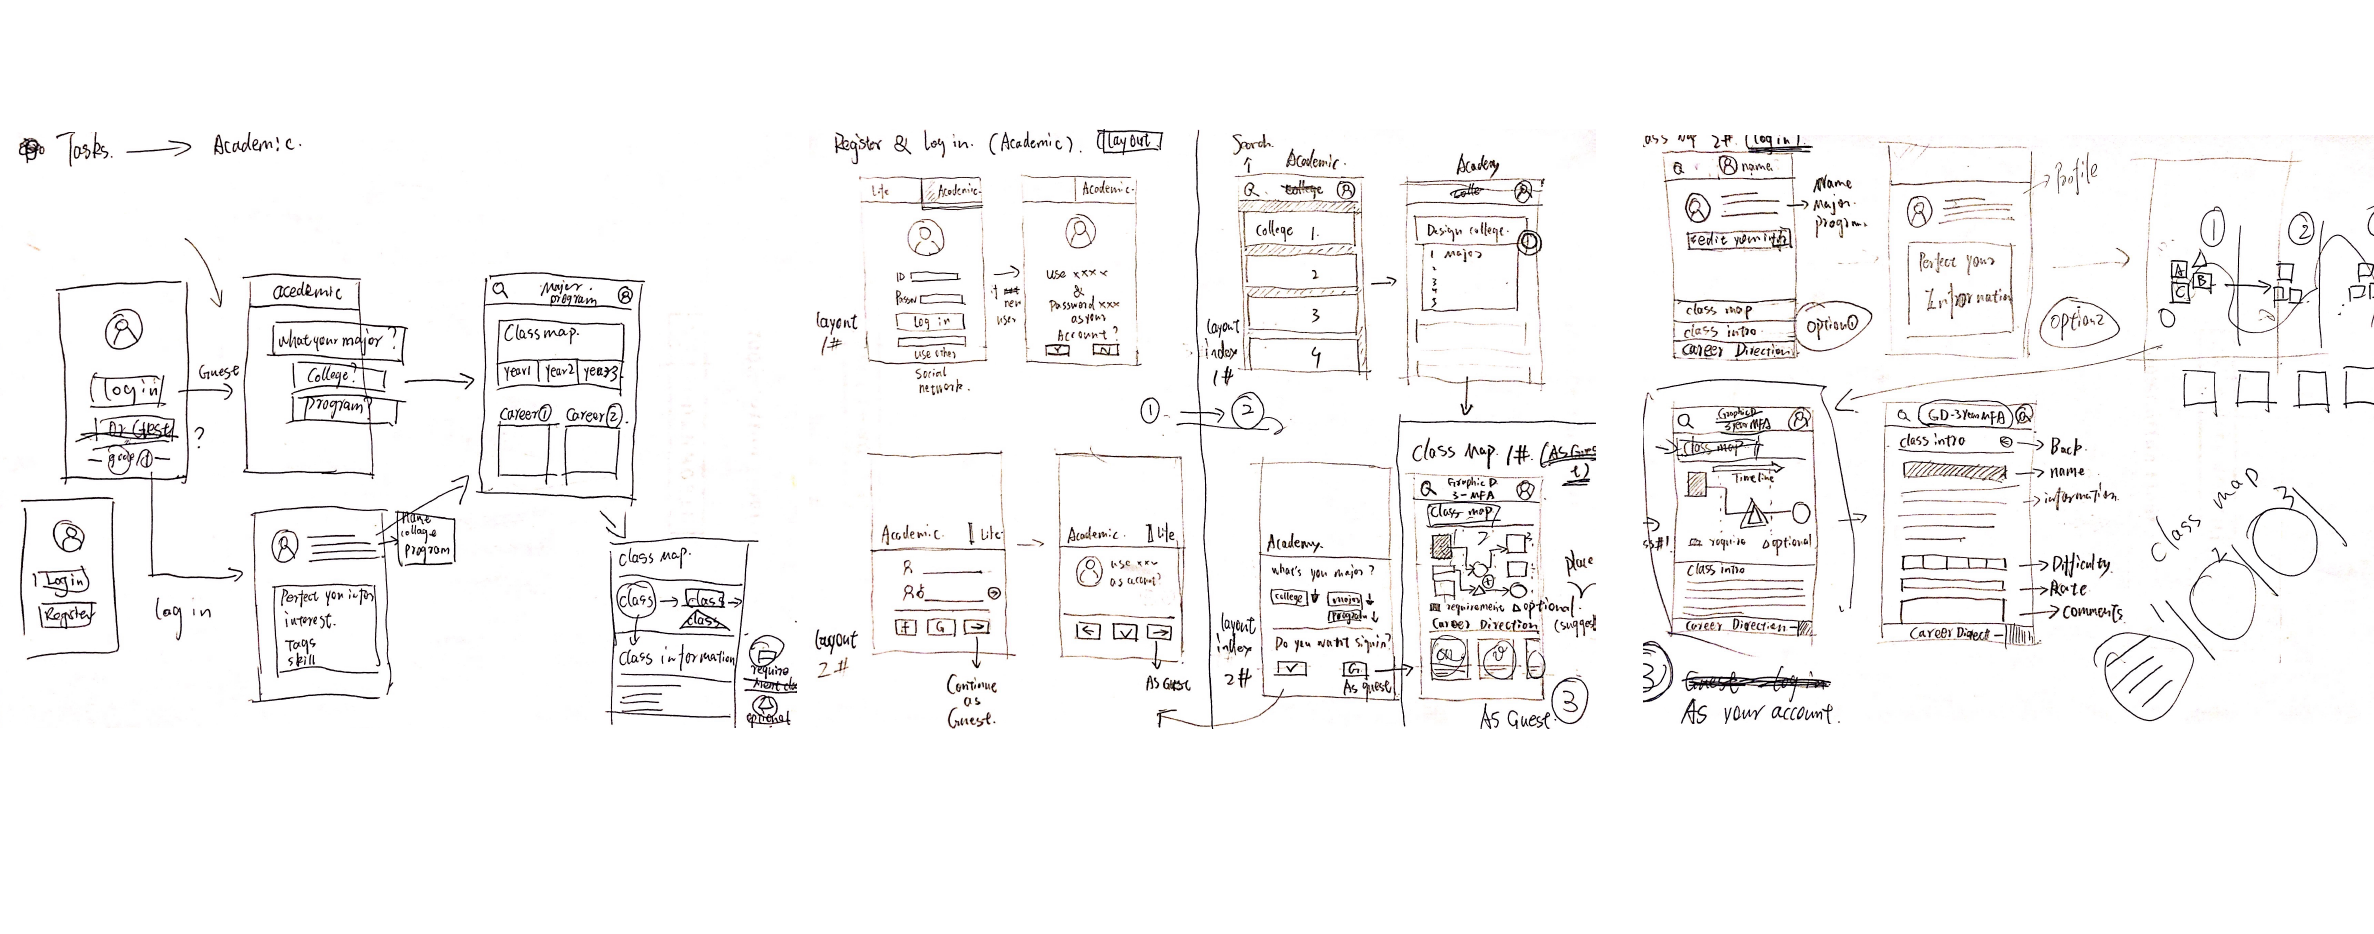 Tasks. → Academic.
Log in
Or Guest
?
Guest
acedemic
what your major ?
College?
program?
Major.
program
Class map.
year1
year2
year3
Career①
Career②
Login
Register
log in
Name
collage
program
Perfect you infor
interest.
Tags
skill
class map.
class
class
class
class information
require
optional
Register & log in. (Academic). layout
Life
Academic.
ID
Log in
use other
social
network.
Academic.
new
user
use xxxx
&
password xxx
as your
Account ?
layout
1#
① → ②
Academic.
Life
Continue
as
Guest.
Academic.
Life
use xxx
as account?
As Guest
layout
2#
Search.
Academic.
college
College 1.
2
3
4
layout
index
1#
Academy
Design college.
1 major
2
3
4
5
Academy.
what's you major ?
college
major
program
Do you want signin?
G.
As guest
layout
index
2#
Class Map 1#. (As Guest)
Graphic D
3-MFA
Class map
requirement △optional.
Career Direction
As Guest.
③
place
(suggest
ass map 2#. (log in).
name.
Name
Major.
program.
edit your infor
class map
class intro
Career Direction
option①
Profile
Perfect your
Information
option2
①
②
A
B
C
Graphic D
3year MFA
class map
Timeline
require △optional
class intro
Career Direction
As your account.
GD-3year MFA
class intro
Back
name
information.
Difficulty.
Rate
comments.
Career Direct
class map
1
2
3